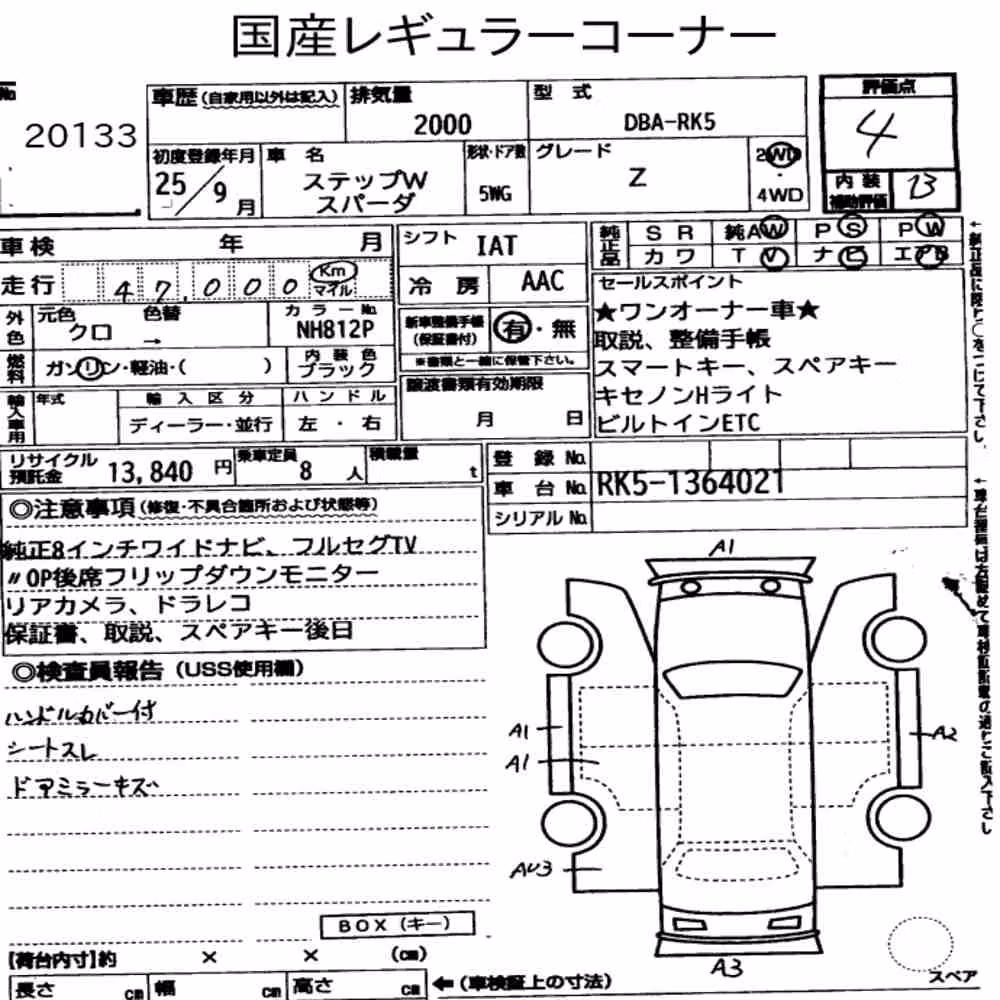 国産レギュラーコーナー
No. 20133
車歴(自家用以外は記入)
排気量 2000
型式 DBA-RK5
評価点 4
内装補助評価 B
初度登録年月 25/9月
車名 ステップW スパーダ
形状・ドア数 5WG
グレード Z
2WD・4WD
車検 年 月
シフト IAT
純正品 SR 純AW PS PW
カワ TV ナビ エアB
走行 47,000 Km マイル
冷房 AAC
セールスポイント
★ワンオーナー車★
取説、整備手帳
スマートキー、スペアキー
キセノンHライト
ビルトインETC
外色 元色 クロ → 色替
カラーNo. NH812P
新車整備手帳(保証書付) 有・無
※書類と一緒に保管下さい。
燃料 ガソリン・軽油・( )
内装色 ブラック
譲渡書類有効期限
月 日
輸入車用 年式 輸入区分 ハンドル
ディーラー・並行 左・右
リサイクル預託金 13,840円
乗車定員 8人
積載量 t
登録No.
車台No. RK5-1364021
シリアルNo.
◎注意事項(修復・不具合箇所および状態等)
純正8インチワイドナビ、フルセグTV
〃OP後席フリップダウンモニター
リアカメラ、ドラレコ
保証書、取説、スペアキー後日
◎検査員報告(USS使用欄)
ハンドルカバー付
シートスレ
ドアミラーキズ
A1
A1
A1
A2
AU3
A3
BOX(キー)
スペア
【荷台内寸】約 × × (cm)
長さ cm 幅 cm 高さ cm
←(車検証上の寸法)